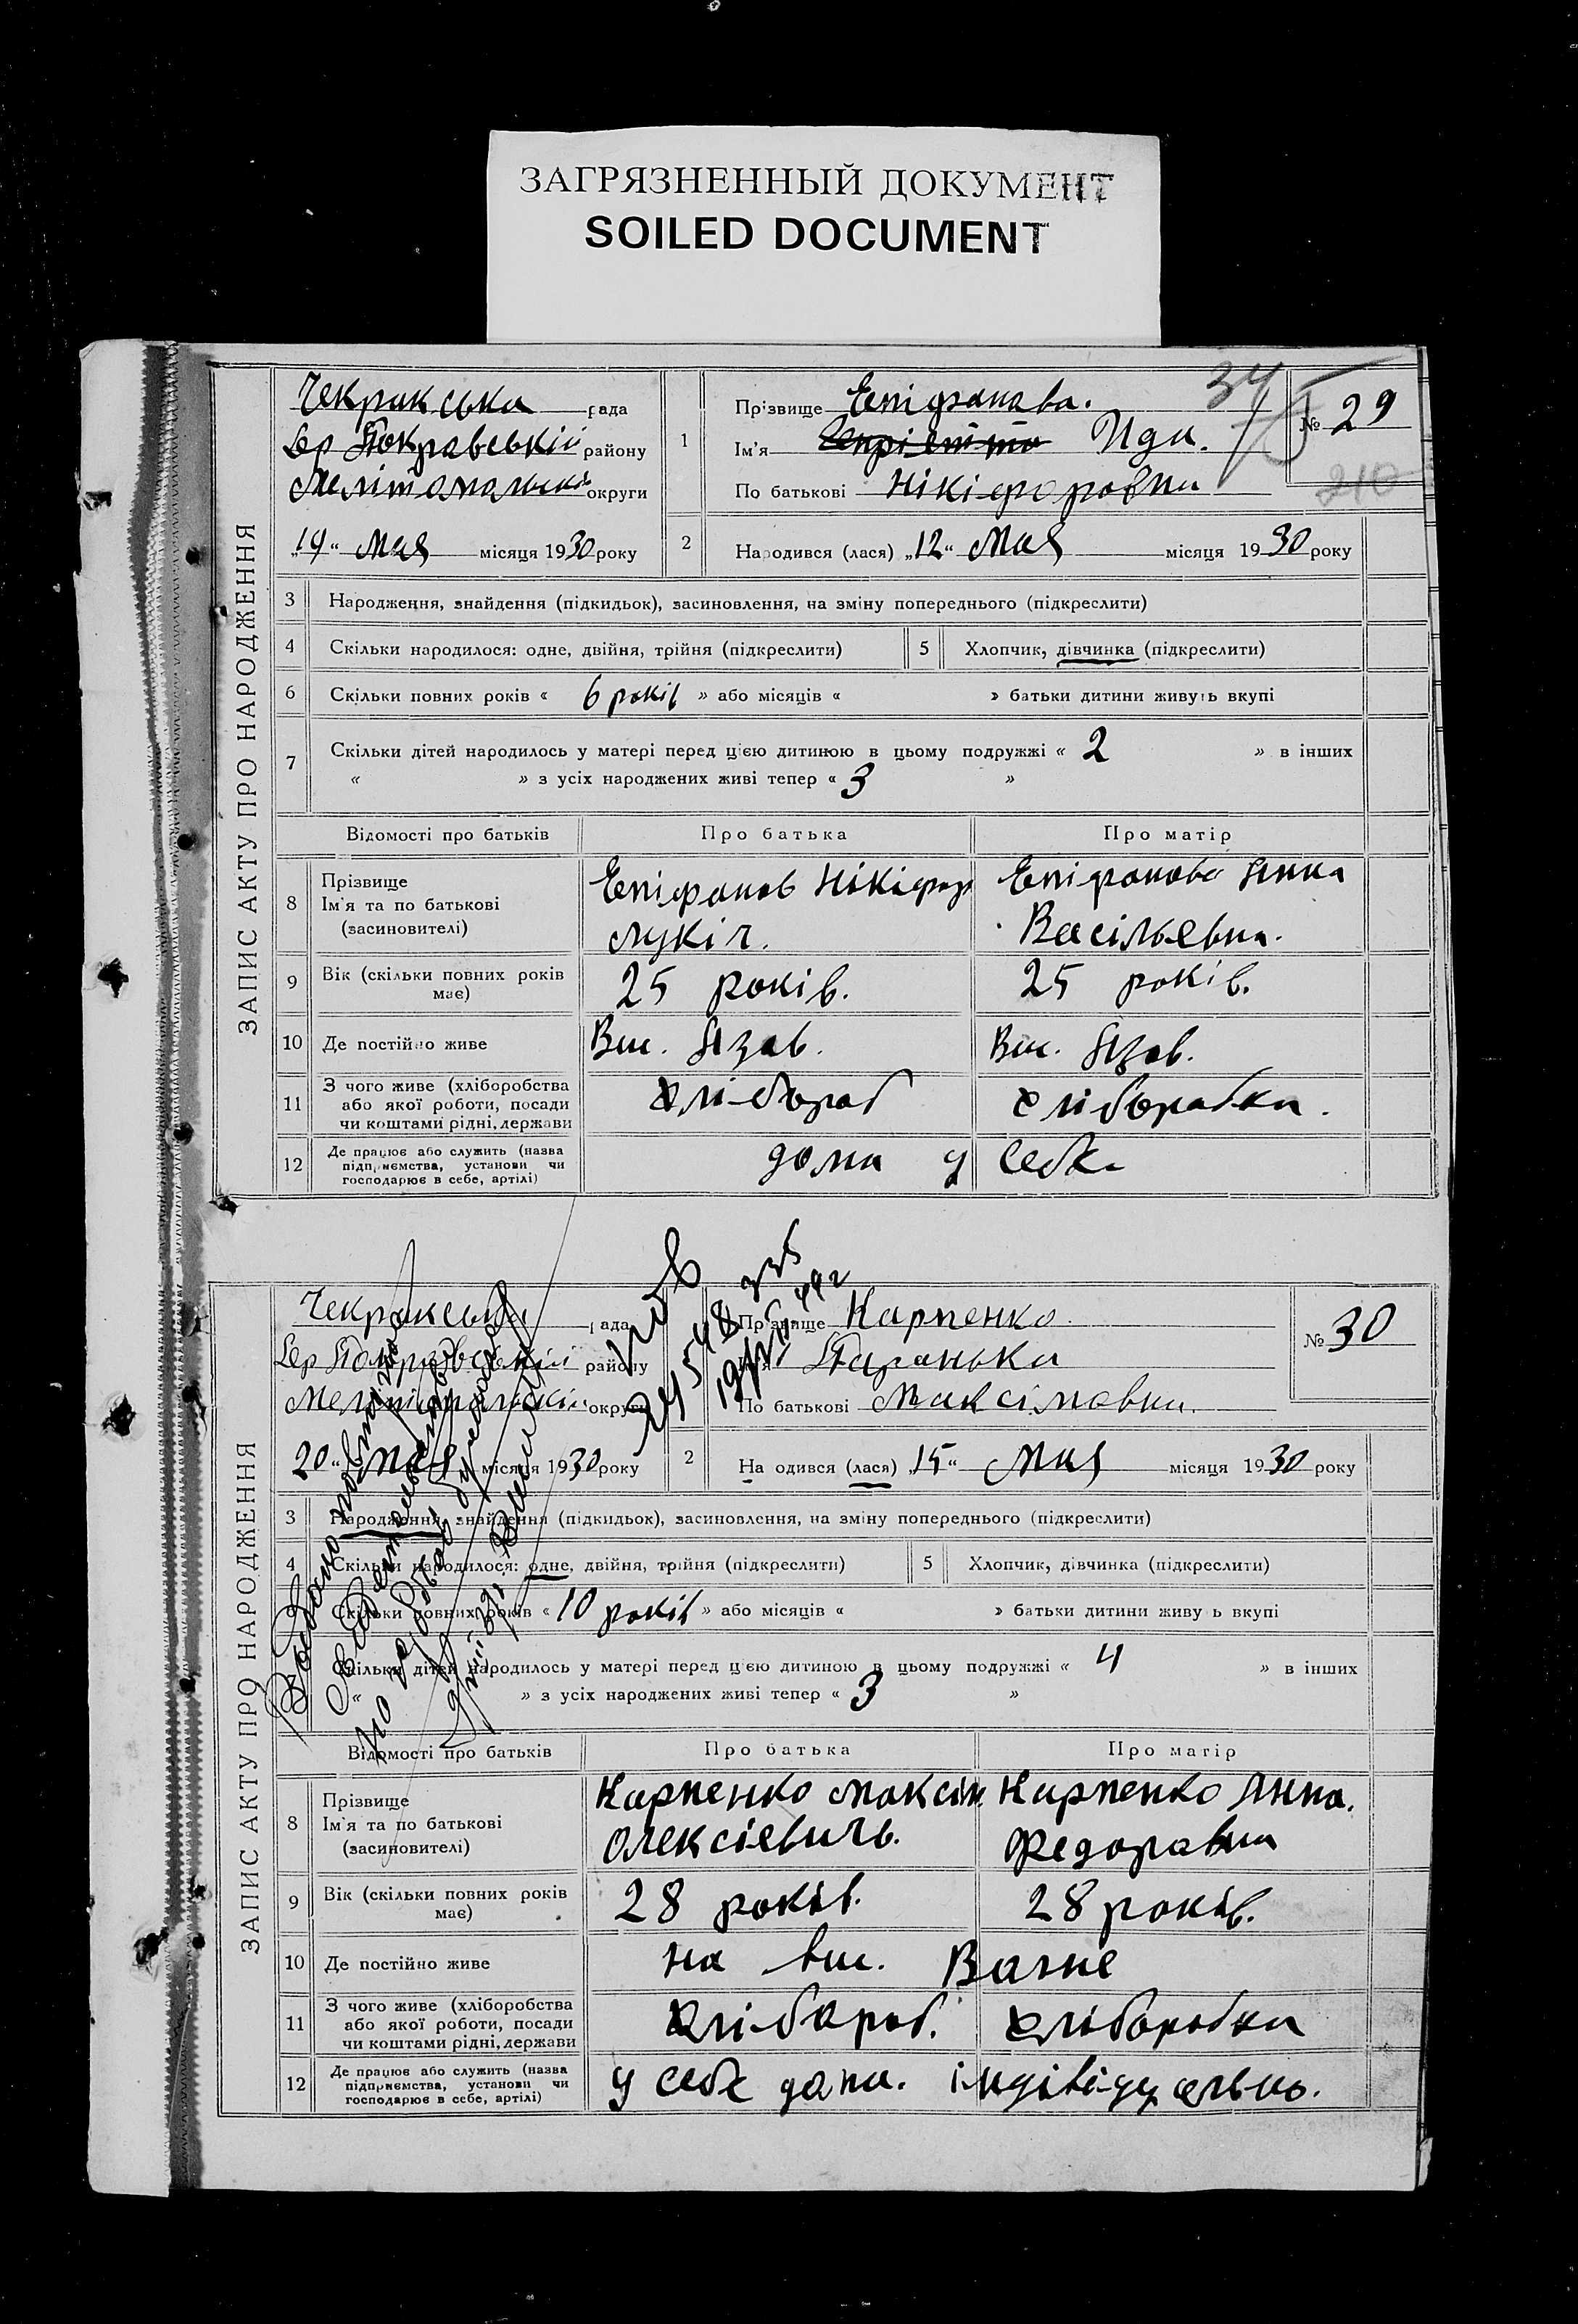 ЗАГРЯЗНЕННЫЙ ДОКУМЕНТ
SOILED DOCUMENT
ЗАПИС АКТУ ПРО НАРОДЖЕННЯ
Чекракська рада
району
округи
„19" Мая місяця 1930 року
1
Прізвище Епіфанава.
Ім'я Ида.
По батькові Нікіфоровна
34
№ 29
210
2 Народився (лася) „12" Мая місяця 1930 року
3 Народження, знайдення (підкидьок), засиновлення, на зміну попереднього (підкреслити)
4 Скільки народилося: одне, двійня, трійня (підкреслити) 5 Хлопчик, дівчинка (підкреслити)
6 Скільки повних років « 6 років » або місяців « » батьки дитини живуть вкупі
7 Скільки дітей народилось у матері перед цією дитиною в цьому подружжі « 2 » в інших
« » з усіх народжених живі тепер « 3 »
Відомості про батьків Про батька Про матір
8 Прізвище Ім'я та по батькові (засновителі)
Епіфанов Нікіфор Лукіч.
Епіфанова Янка Васільевна.
9 Вік (скільки повних років має) 25 років. 25 років.
10 Де постійно живе Вис. Язов. Вис. Язов.
11 З чого живе (хліборобства або якої роботи, посади чи коштами рідні, держави хлібороб хліборобка.
12 Де працює або служить (назва підприємства, установи чи господарює в себе, артілі) дома у себе
ЗАПИС АКТУ ПРО НАРОДЖЕННЯ
Чекракська рада
району
округи
20" Мая місяця 1930 року
Прізвище Карпенко
Паранька
По батькові Максімовна.
№ 30
2 На одився (лася) „15" Мая місяця 1930 року
3 Народження, знайдення (підкидьок), засиновлення, на зміну попереднього (підкреслити)
4 Скільки народилося: одне, двійня, трійня (підкреслити) 5 Хлопчик, дівчинка (підкреслити)
Скільки повних років « 10 років » або місяців « » батьки дитини живу ь вкупі
Скільки дітей народилось у матері перед цією дитиною в цьому подружжі « 4 » в інших
« » з усіх народжених живі тепер « 3 »
Відомості про батьків Про батька Про матір
8 Прізвище Ім'я та по батькові (засиновителі)
Карпенко Максім. Олексієвичь.
Карпенко Анна. Федоравна
9 Вік (скільки повних років має) 28 років. 28 років.
10 Де постійно живе на вис. Вагне
11 З чого живе (хліборобства або якої роботи, посади чи коштами рідні, держави хлібароб. хліборобка
12 Де працює або служить (назва підприємства, установи чи господарює в себе, артілі) у себе дома. індівідуально.